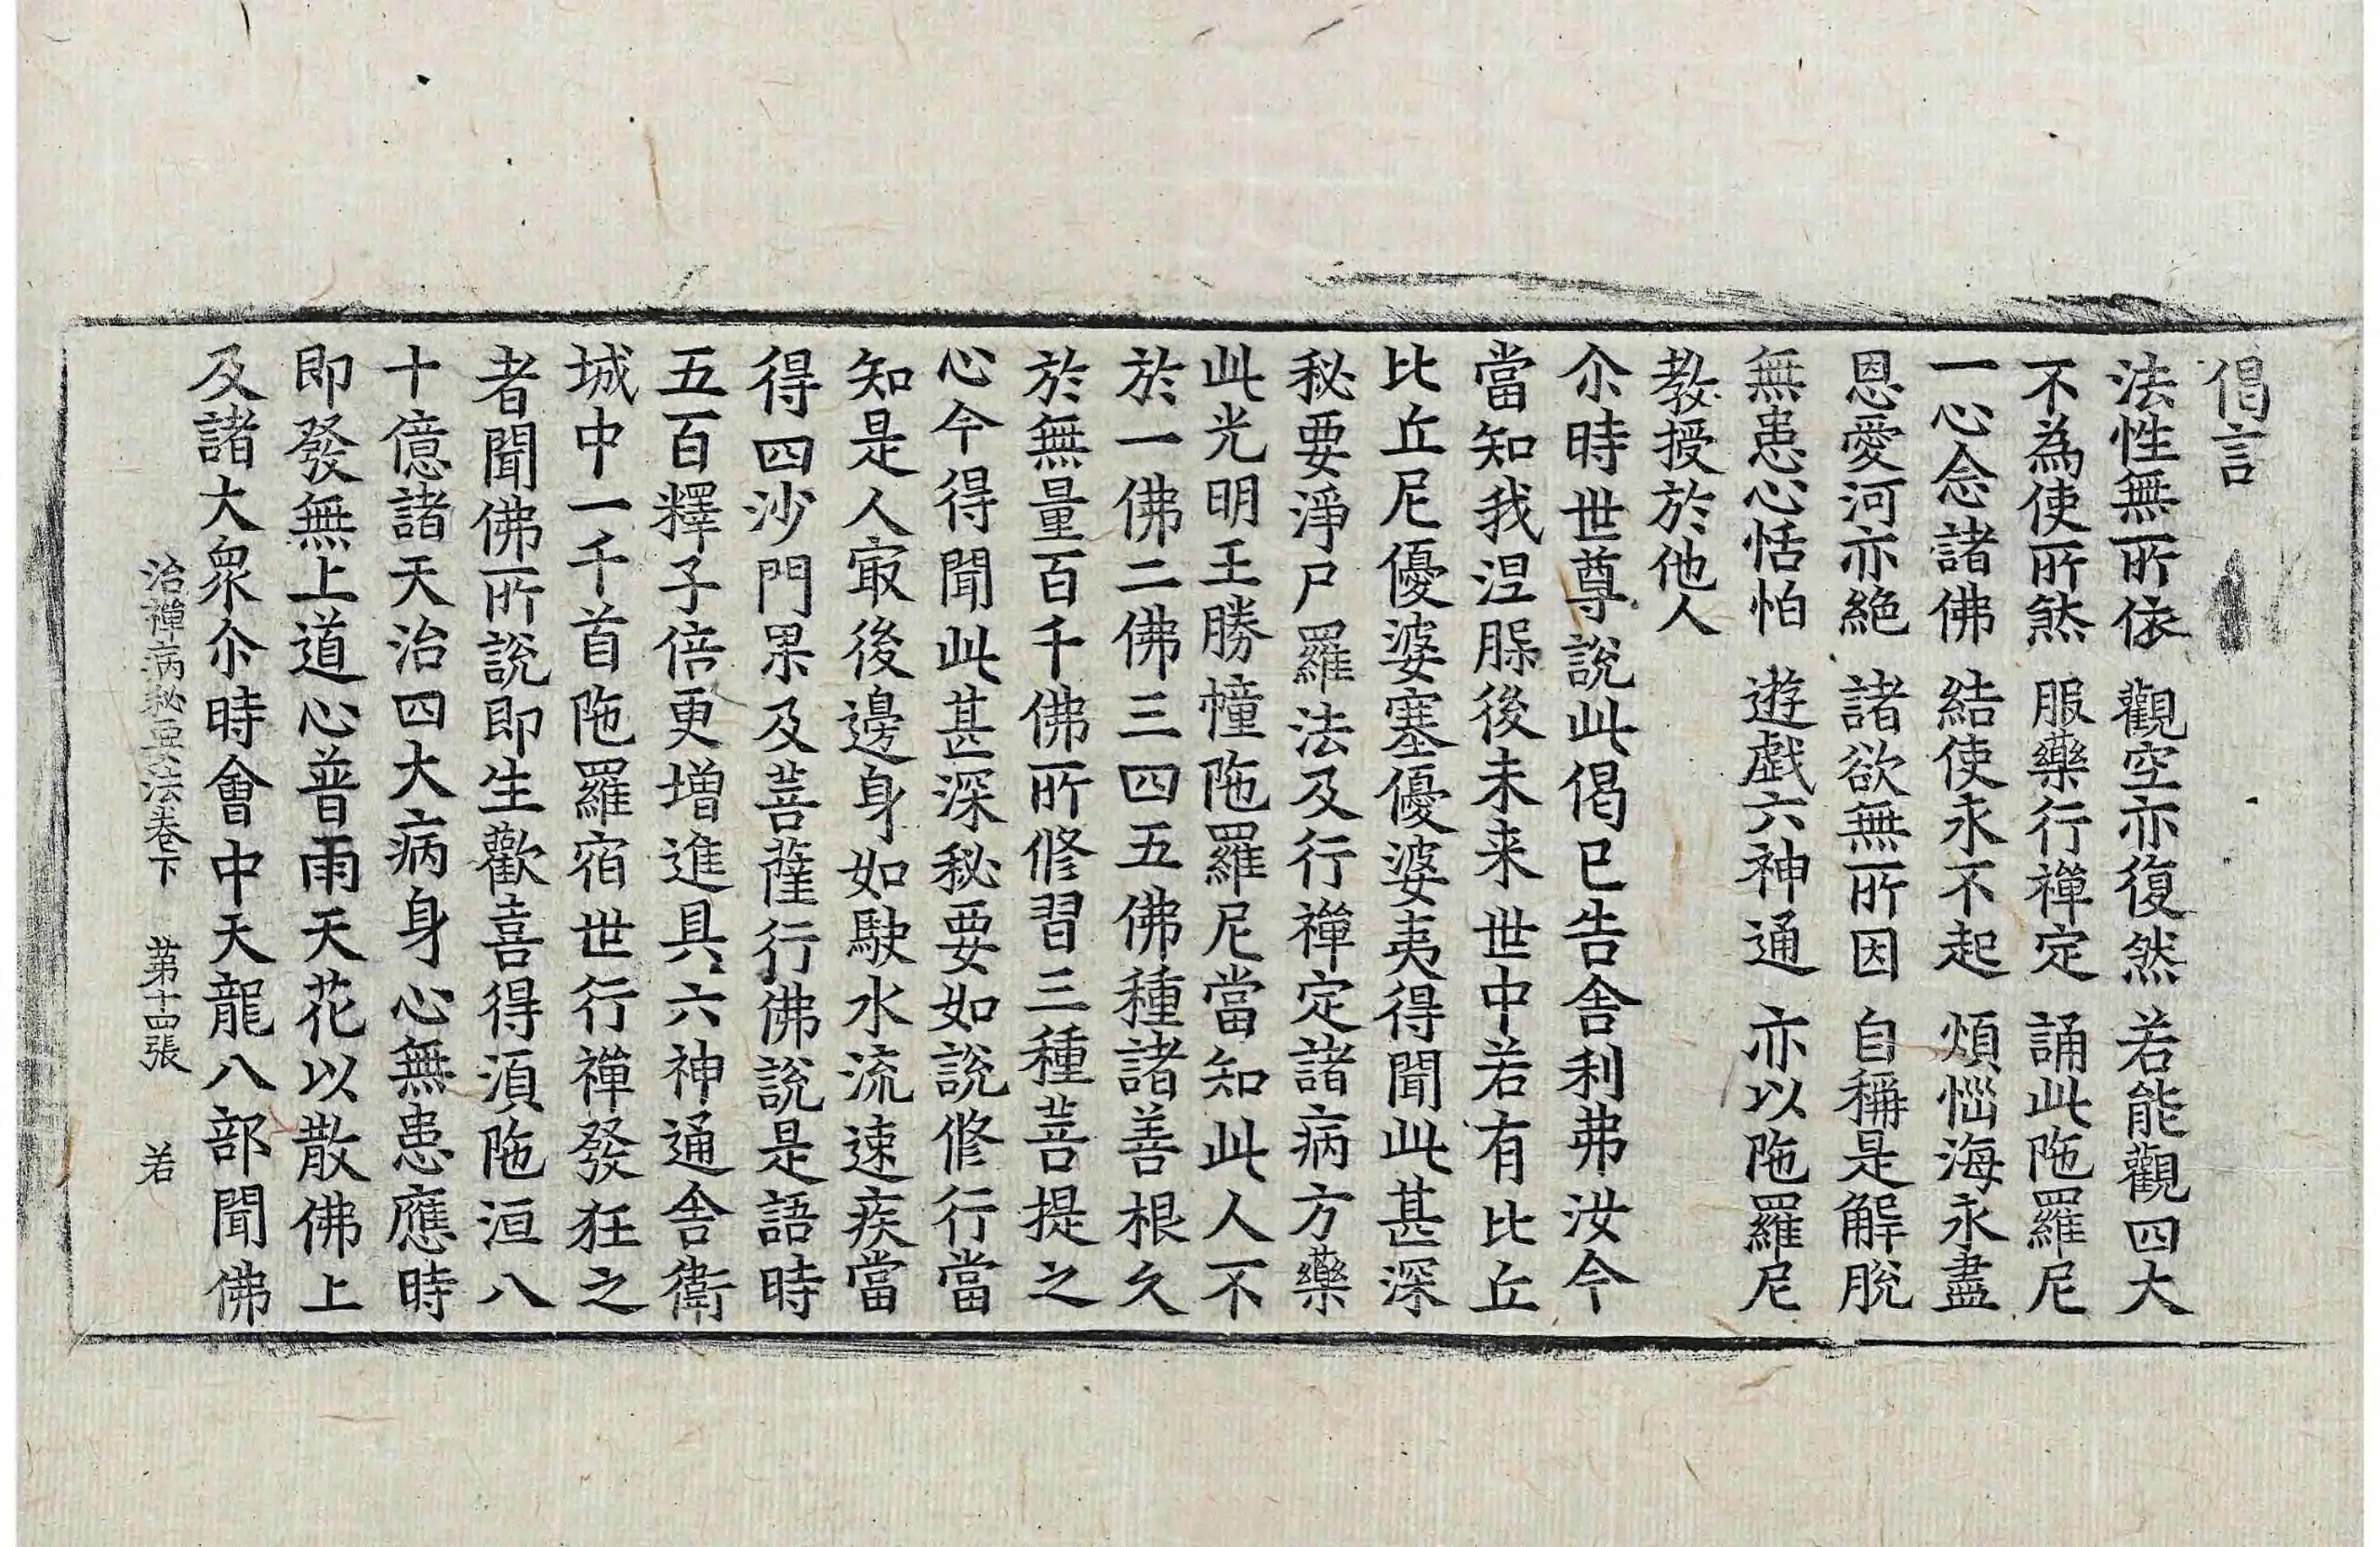 偈言
法性無所依　觀空亦復然　若能觀四大
不為使所煞　服藥行禪定　誦此陁羅尼
一心念諸佛　結使永不起　煩惱海永盡
恩愛河亦絶　諸欲無所因　自稱是解脫
無患心恬怕　遊戲六神通　亦以陁羅尼
教授於他人
尒時世尊說此偈已告舍利弗汝今
當知我涅槃後未来世中若有比丘
比丘尼優婆塞優婆夷得聞此甚深
秘要淨尸羅法及行禪定諸病方藥
此光明王勝幢陁羅尼當知此人不
於一佛二佛三四五佛種諸善根久
於無量百千佛所修習三種菩提之
心今得聞此甚深秘要如說修行當
知是人㝡後邊身如駛水流速疾當
得四沙門果及菩薩行佛說是語時
五百釋子倍更增進具六神通舍衛
城中一千首陁羅宿世行禪發狂之
者聞佛所說即生歡喜得湏陁洹八
十億諸天治四大病身心無患應時
即發無上道心普雨天花以散佛上
及諸大衆尒時會中天龍八部聞佛
治禪病秘要法卷下　第十四張　若